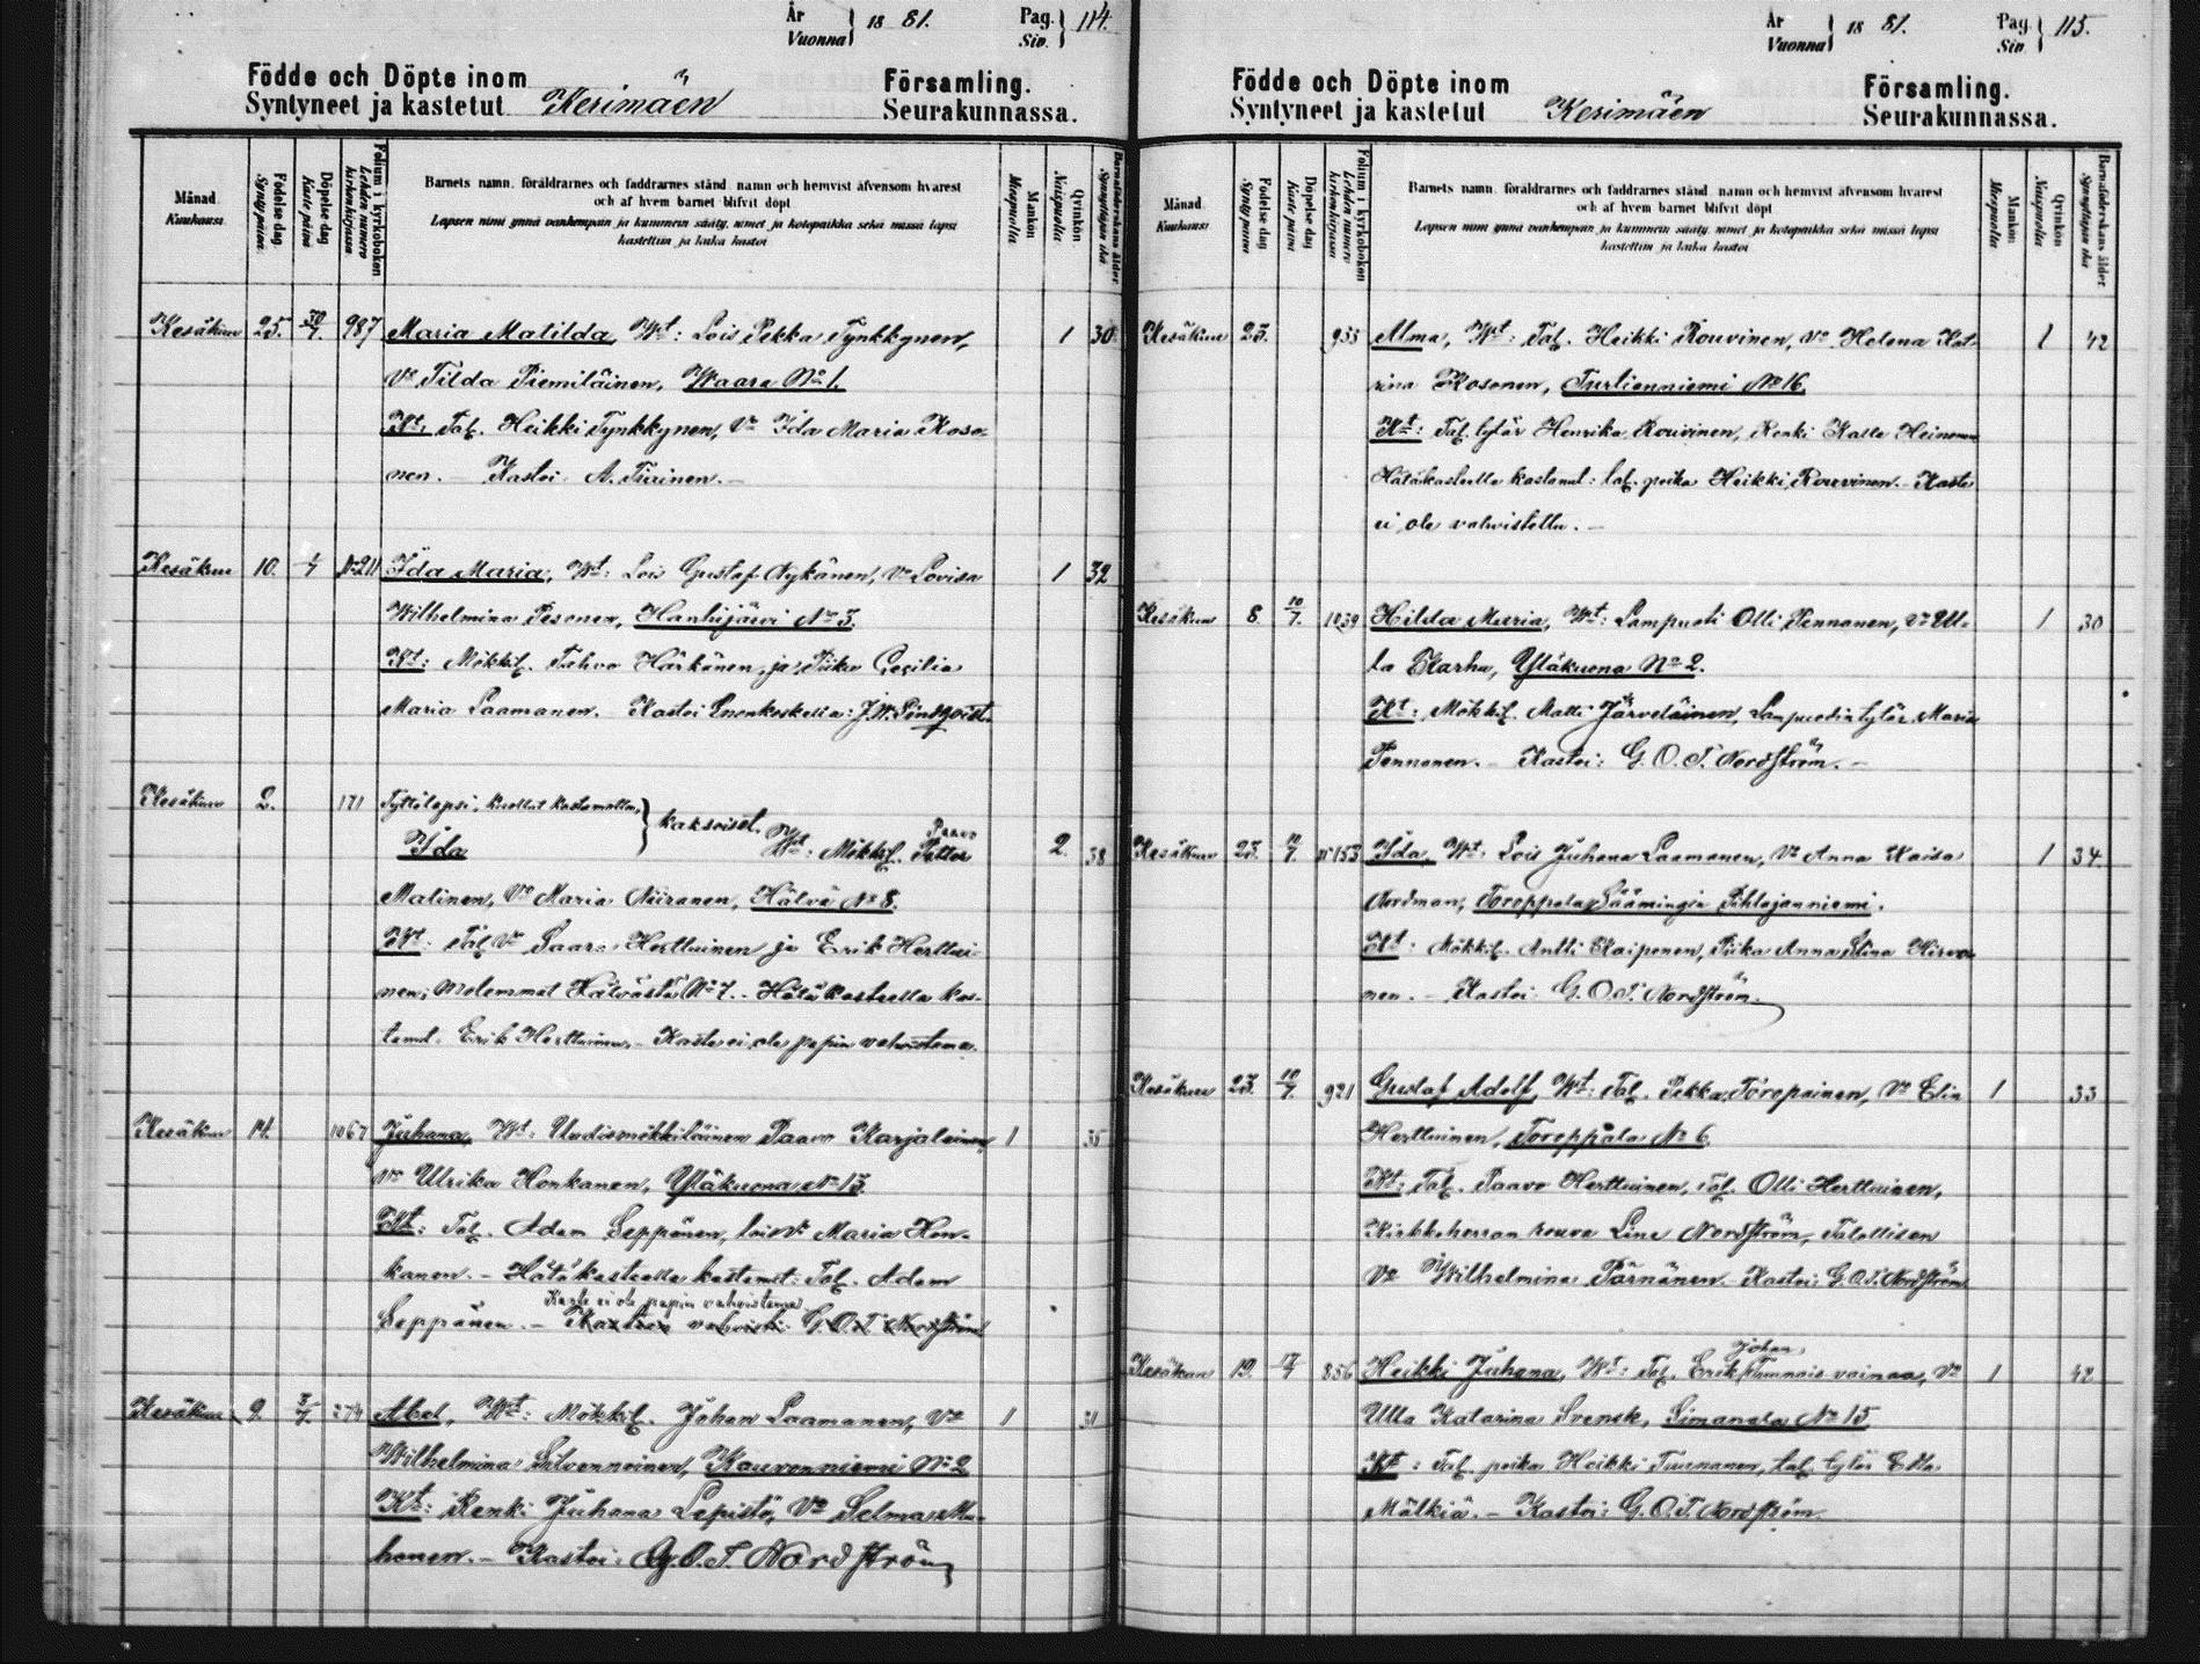 År
Vuonna } 18 81. Pag.
Siv. } 114.
Födde och Döpte inom
Syntyneet ja kastetut Kerimäen Församling.
Seurakunnassa.
Månad
Kuukausi
Födelse dag
Synty päivä
Döpelse dag
Kaste päivä
Folium i kyrkoboken
Lehden numero kirkonkirjassa
Barnets namn, föräldrarnes och faddrarnes stånd, namn och hemvist äfvensom hvarest
och af hvem barnet blifvit döpt
Lapsen nimi ynnä vanhempain ja kummein sääty, nimet ja kotopaikka sekä missä lapsi
kastettiin ja kuka kastoi
Mankön
Miespuolta
Qvinkön
Naispuolta
Barnaföderskans ålder
Synnyttäjän ikä
Kesäkuu 25. 30/7. 987 Maria Matilda, Wt: Lois Pekka Tynkkynen, 1 30
Vo Tilda Piemiläinen, Waara No 1.
Kt: Tal. Heikki Tynkkynen, Vo Ida Maria Koso-
nen. – Kastoi: A. Tiirinen. –
Kesäkuu 10. 4 N:211 Ida Maria, Wt: Lois Gustaf Nykänen, Vo Lovisa 1 32
Wilhelmina Pesonen, Hanhijärvi No 3.
Kt: Mökkil. Tahvo Härkönen, ja Piika Cecilia
Maria Laamanen. Kastoi Enonkoskella: J.W. Lindqvist.
Kesäkuu 2. 171 Tyttölapsi, kuollut kastamatta, } kaksoiset. Wt: Mökkil. Paavo
Ida Petter 2. 38
Malinen, Vo Maria Niiranen, Hälvä No 8.
Kt: Tal. Vo Saara Herttuinen ja Erik Herttui-
nen, molemmat Hälvästä No 7. – Hätäkasteella kas-
tanut Erik Herttuinen. – Kaste ei ole papin vahvistama.
Kesäkuu 14. 1067 Juhana, Wt: Uudismökkiläinen Paavo Karjalainen, 1 35
Vo Ulrika Honkanen, Yläkuona No 13.
Kt: Tal. Adam Seppänen, lois Vo Maria Hon-
kanen. – Hätäkasteella kastanut: Tal. Adam
Kaste ei ole papin vahvistama
Seppänen. – Kasteen vahvisti: G.O.T. Nordström
Kesäkuu 9. 3/7. 274 Abel, Wt: Mökkil. Johan Laamanen, Vo 1 31
Wilhelmina Silvennoinen, Kauvonniemi No 2
Kt: Renki Juhana Lepistö, Vo Selma Mu-
honen. – Kastoi: G.O.T. Nordström
År
Vuonna } 18 81. Pag.
Siv. } 115.
Födde och Döpte inom
Syntyneet ja kastetut Kerimäen Församling.
Seurakunnassa.
Månad
Kuukausi
Födelse dag
Synty päivä
Döpelse dag
Kaste päivä
Folium i kyrkoboken
Lehden numero kirkonkirjassa
Barnets namn, föräldrarnes och faddrarnes stånd, namn och hemvist äfvensom hvarest
och af hvem barnet blifvit döpt
Lapsen nimi ynnä vanhempain ja kummein sääty, nimet ja kotopaikka sekä missä lapsi
kastettiin ja kuka kastoi
Mankön
Miespuolta
Qvinkön
Naispuolta
Barnaföderskans ålder
Synnyttäjän ikä
Kesäkuu 23. 955 Alma, Wt: Tal. Heikki Rouvinen, Vo Helena Kat- 1 42
rina Kosonen, Turlienniemi No 16.
Kt: Tal. tytär Henrika Rouvinen, Renki Kalle Heinonen
Hätäkasteella kastanut: tal. poika Heikki Rouvinen. – Kaste
ei ole vahvistettu. –
Kesäkuu 8. 10/7. 1039 Hilda Maria, Wt: Lampuoti Olli Pennanen, Vo Ul- 1 30
la Karhu, Yläkuona No 2.
Kt: Mökkil. Matti Järveläinen, Lampuodin tytär Maria
Pennanen. – Kastoi: G.O.T. Nordström. –
Kesäkuu 23. 10/7. N:153 Ida, Wt: Lois Juhana Laamanen, Vo Anna Kaisa 1 34
Nordman, Toroppala, Säämingin Pihlajanniemi.
Kt: Mökkil. Antti Kaiponen, Piika Anna Stina Hirvo-
nen. – Kastoi: G.O.T. Nordström.
Kesäkuu 23. 10/7. 921 Gustaf Adolf, Wt: Tal. Pekka Toropainen, Vo Elin 1 33
Herttuinen, Toroppala No 6.
Kt: Tal. Paavo Herttuinen, Tal. Olli Herttuinen,
Kirkkoherran rouva Line Nordström, Talollisen
Vo Wilhelmina Pärnänen. Kastoi: G.O.T. Nordström
Johan,
Kesäkuu 19. 17/7 856 Heikki Juhana, Wt: Tal. Erik Tunnais vainaa, Vo 1 42
Ulla Katarina Svensk, Simanala No 15.
Kt: Tal. poika Heikki Tuunanen, tal. tytär Edla
Mälkiä. – Kastoi: G.O.T. Nordström.